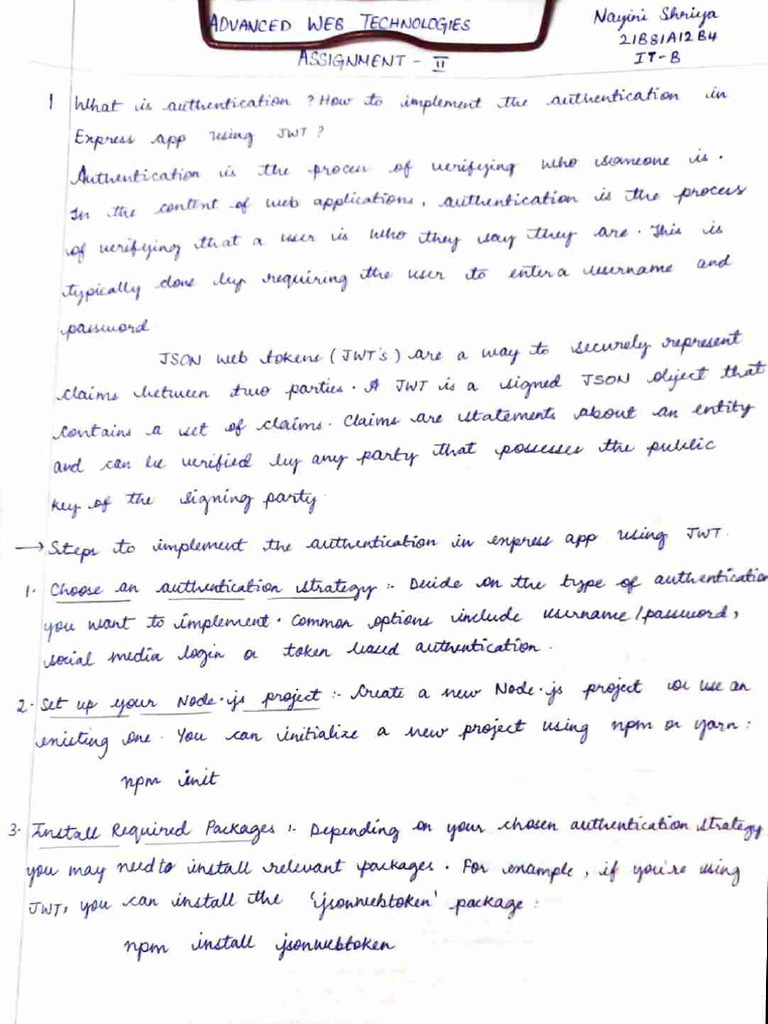 ADVANCED WEB TECHNOLOGIES
Nayini Shriya
21B81A12B4
IT-B
ASSIGNMENT - II
1 What is authentication ? How to implement the authentication in
Express app using JWT ?
Authentication is the process of verifying who someone is.
In the content of web applications, authentication is the process
of verifying that a user is who they say they are. This is
typically done by requiring the user to enter a username and
password.
JSON web tokens (JWT's) are a way to securely represent
claims between two parties. A JWT is a signed JSON object that
contains a set of claims. Claims are statements about an entity
and can be verified by any party that possesses the public
key of the signing party.
→ Steps to implement the authentication in express app using JWT.
1. Choose an authentication strategy :- Decide on the type of authentication
you want to implement. Common options include username/password,
social media login or token based authentication.
2. Set up your Node.js project :- Create a new Node.js project or use an
existing one. You can initialize a new project using npm or yarn :
npm init
3. Install Required Packages :- Depending on your chosen authentication strategy
you may need to install relevant packages. For example, if you're using
JWT, you can install the 'jsonwebtoken' package :
npm install jsonwebtoken